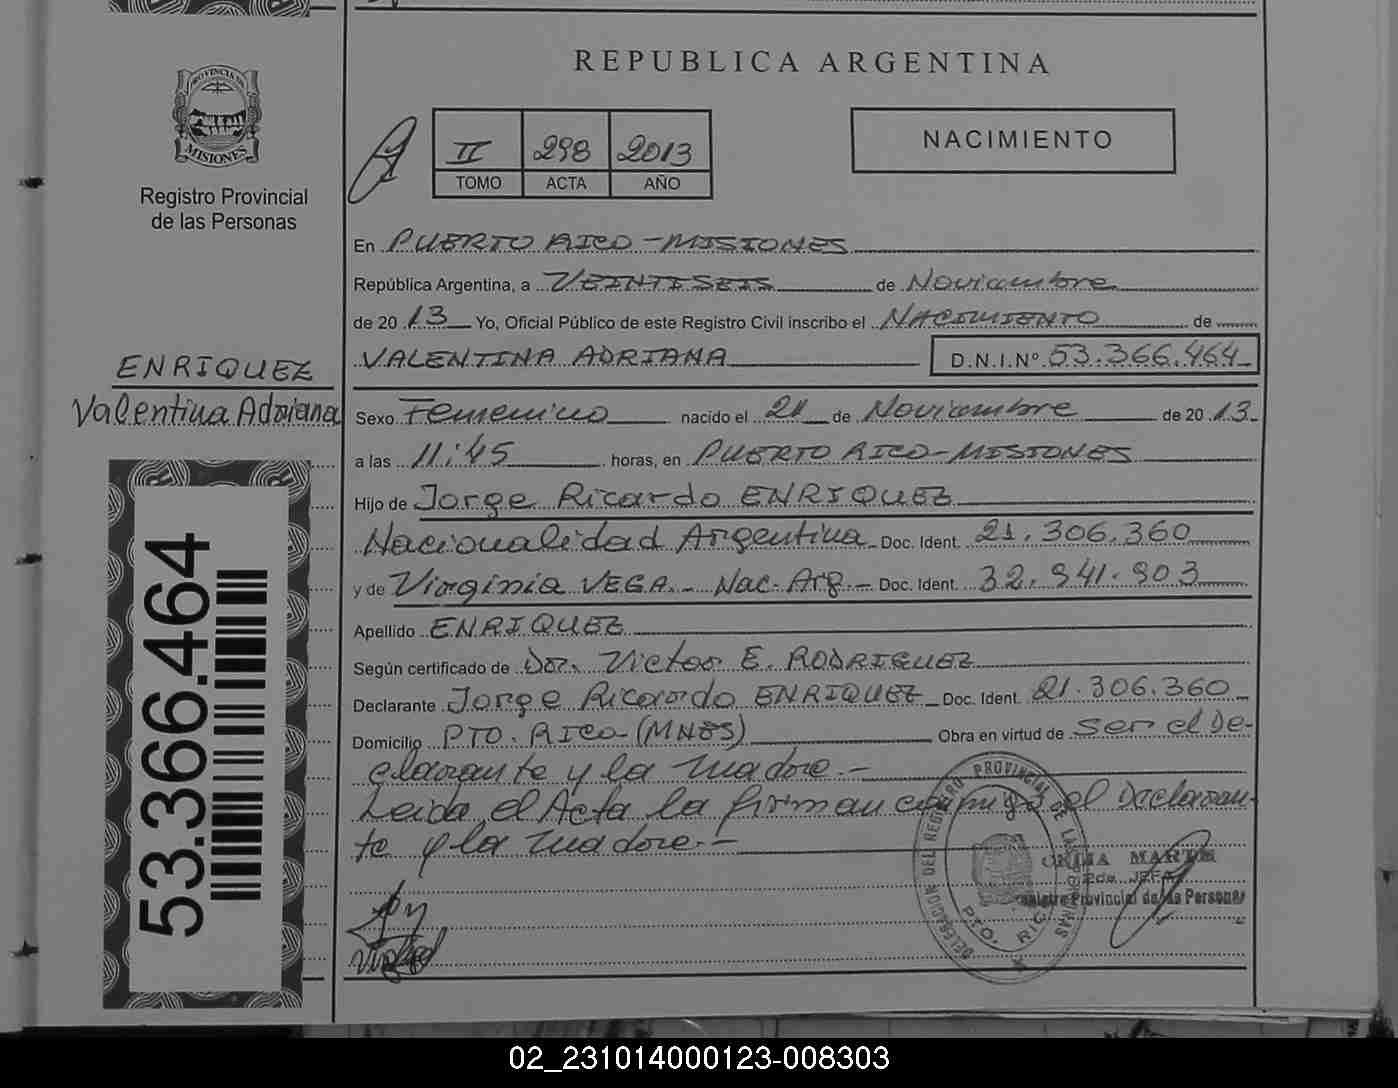 REPUBLICA ARGENTINA
PROVINCIA DE
MISIONES
Registro Provincial
de las Personas
II 298 2013
TOMO ACTA AÑO
NACIMIENTO
En PUERTO RICO - MISIONES
República Argentina, a VEINTISEIS de Noviembre
de 2013 Yo, Oficial Público de este Registro Civil inscribo el NACIMIENTO de
VALENTINA ADRIANA D.N.I.Nº 53.366.464
ENRIQUEZ
Valentina Adriana
Sexo Femenino nacido el 21 de Noviembre de 2013
a las 11:45 horas, en PUERTO RICO - MISIONES
Hijo de Jorge Ricardo ENRIQUEZ
Nacionalidad Argentina Doc. Ident. 21.306.360
y de Virginia VEGA.- Nac. Arg.- Doc. Ident. 32.941.903
Apellido ENRIQUEZ
Según certificado de Dr. Victor E. RODRIGUEZ
Declarante Jorge Ricardo ENRIQUEZ Doc. Ident. 21.306.360
Domicilio PTO. RICO - (MNES) Obra en virtud de ser el De-
clarante y la madre.-
Leida el Acta la firman conmigo el Declaran-
te y la madre.-
53.366.464
DELEGACION DEL REGISTRO PROVINCIAL DE LAS PERSONAS
PTO. RICO
MARTA
2da JEFA
Registro Provincial de las Personas
02_231014000123-008303